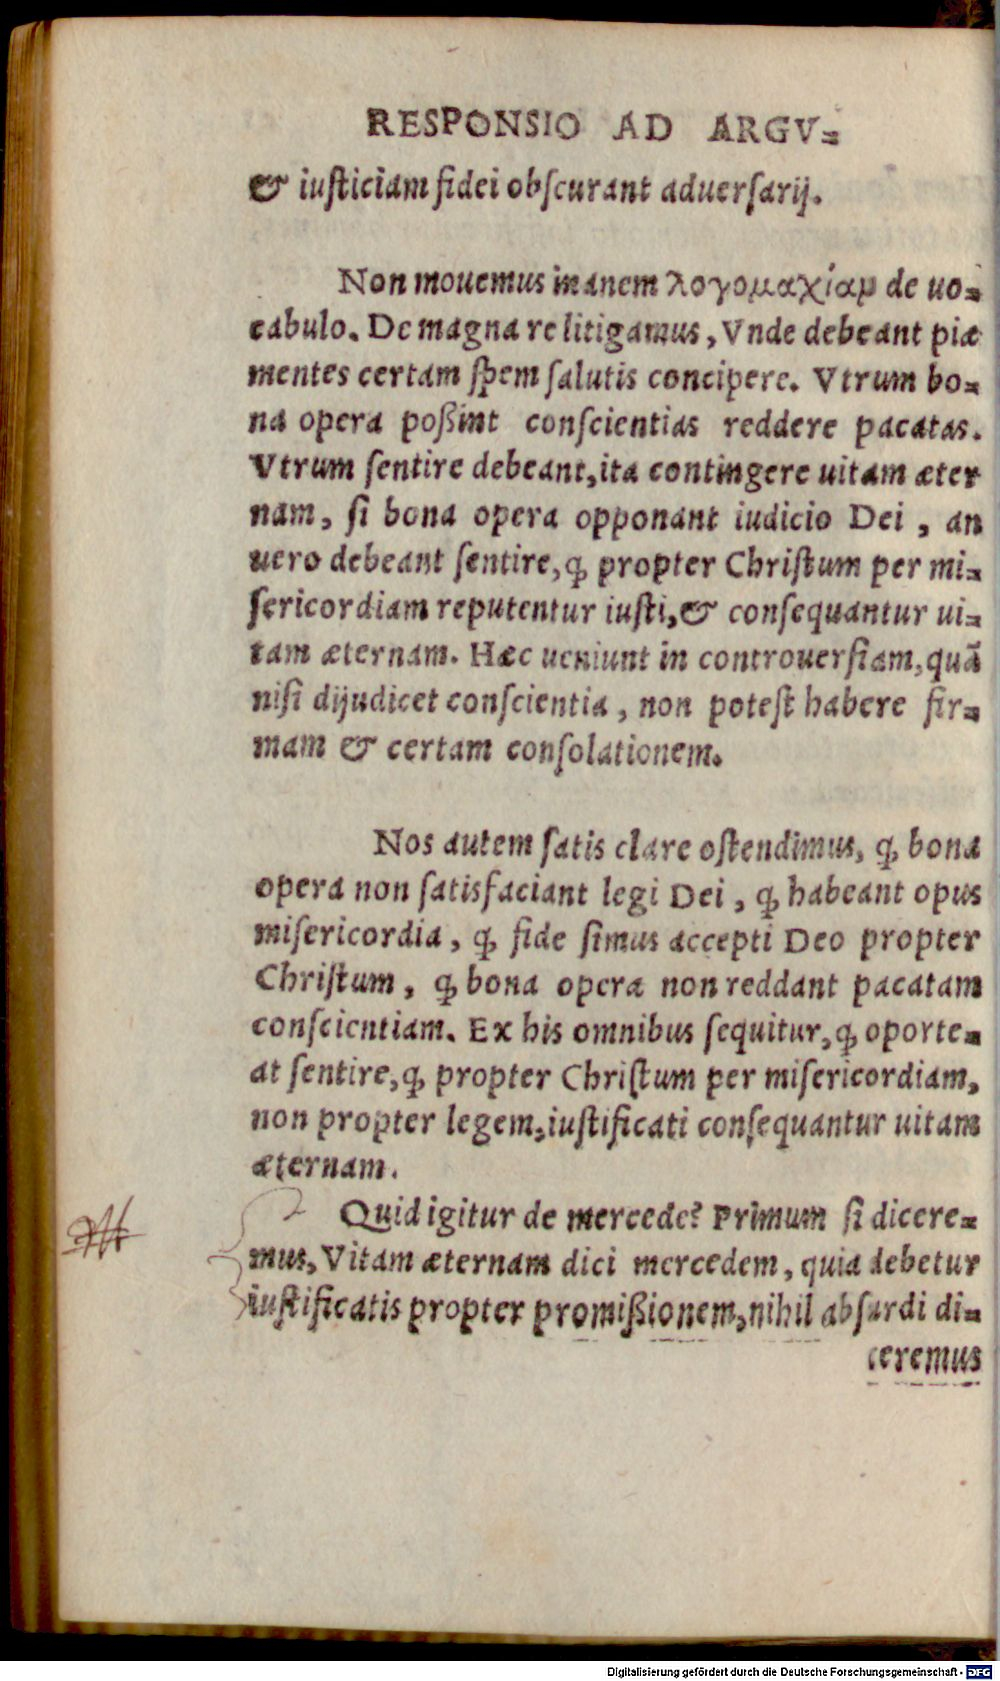 RESPONSIO AD ARGV=
& iusticiam fidei obscurant aduersarij.
Non mouemus inanem λογομαχίαμ de uo=
cabulo. De magna re litigamus, Vnde debeant piæ
mentes certam spem salutis concipere. Vtrum bo=
na opera poßint conscientias reddere pacatas.
Vtrum sentire debeant, ita contingere uitam æter
nam, si bona opera opponant iudicio Dei, an
uero debeant sentire, ꝙ propter Christum per mi=
sericordiam reputentur iusti, & consequantur ui=
tam æternam. Hæc ueniunt in controuersiam, quã
nisi dijudicet conscientia, non potest habere fir=
mam & certam consolationem.
Nos autem satis clare ostendimus, ꝙ bona
opera non satisfaciant legi Dei, ꝙ habeant opus
misericordia, ꝙ fide simus accepti Deo propter
Christum, ꝙ bona opera non reddant pacatam
conscientiam. Ex his omnibus sequitur, ꝙ oporte=
at sentire, ꝙ propter Christum per misericordiam,
non propter legem, iustificati consequantur uitam
æternam.
Quid igitur de mercede? Primum si dicere=
mus, Vitam æternam dici mercedem, quia debetur
iustificatis propter promißionem, nihil absurdi di=
ceremus
Digitalisierung gefördert durch die Deutsche Forschungsgemeinschaft - DFG